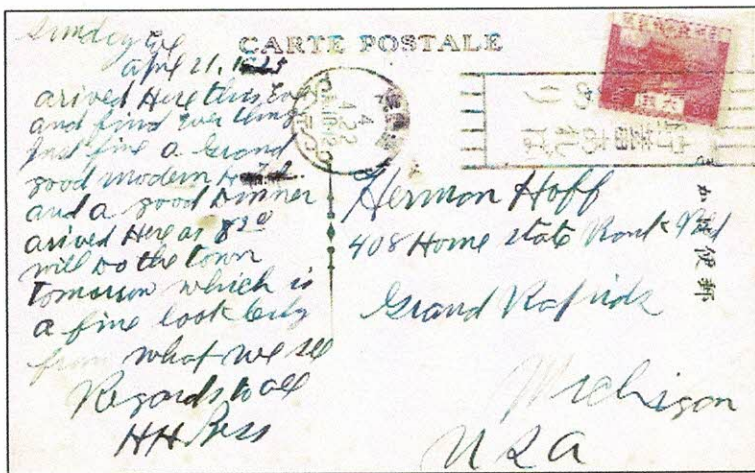 CARTE POSTALE
Sunday Eve
April 21, 1925
arived Here this Eve
and find Evrthing
Just fine a Grand
good modern Hotel
and a good Dinner
arived Here as 8 30
will Do the town
tomorrow which is
a fine look City
from what we see
Regards to all
HH
Herman Hoff
408 Home State Bank Bld
Grand Rapids
Michigan
USA
きか端便郵